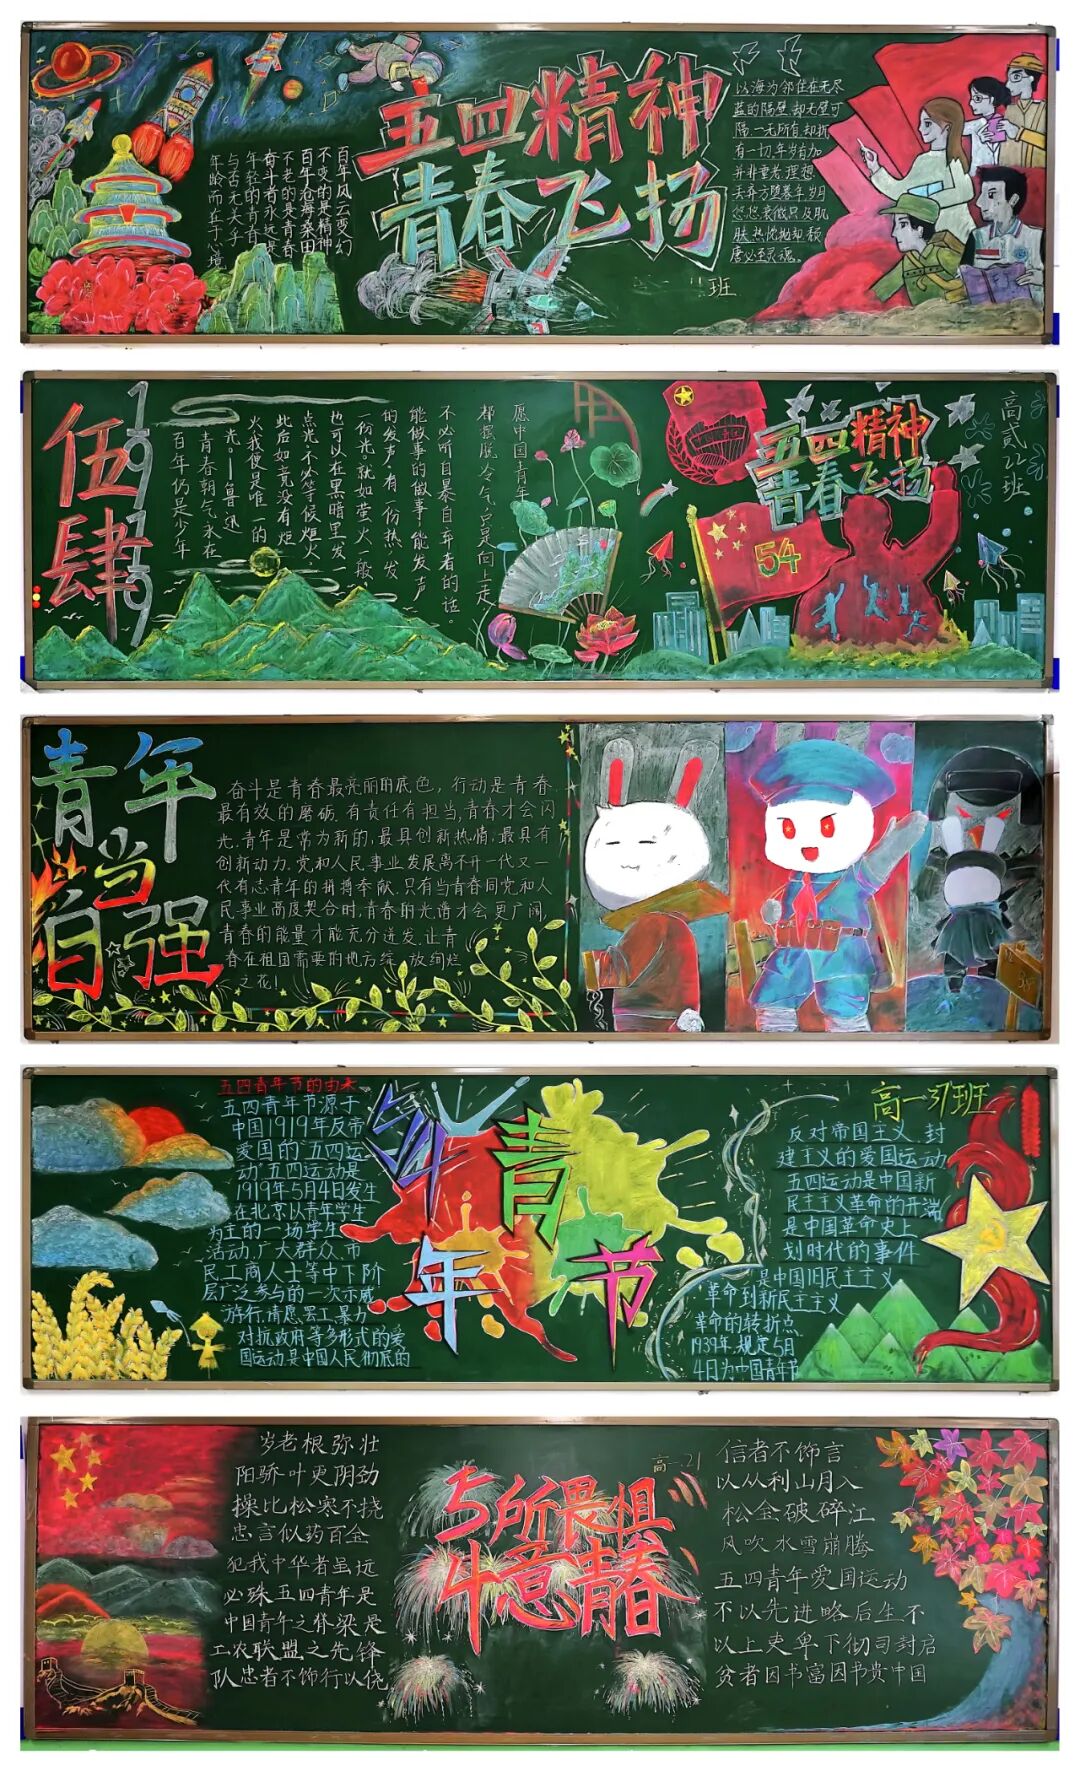 五四精神
青春飞扬
百年风云变幻
不变的是精神
百年沧海桑田
不老的是青春
奋斗者永远是
年轻的青春
与否无关乎
年龄而在于心境
以海为邻住在无尽
蓝的隔壁却无壁可
隔一无所有却拆
有一切年岁有加
并非垂老理想
丢弃方堕暮年岁月
悠悠衰微只及肌
肤热忱抛却颓
唐必至灵魂。
班
伍肆
1919
愿中国青年
都摆脱冷气,只是向上走,
不必听自暴自弃者的话。
能做事的做事,能发声
的发声。有一份热,发
一份光。就如萤火一般,
也可以在黑暗里发一
点光,不必等候炬火,
此后如竟没有炬
火我便是唯一的
光。——鲁迅
青春朝气永在
百年仍是少年
五四精神
青春飞扬
54
高贰22班
青年
当
自强
奋斗是青春最亮丽的底色,行动是青春
最有效的磨砺.有责任有担当,青春才会闪
光.青年是常为新的,最具创新热情,最具有
创新动力.党和人民事业发展离不开一代又一
代有志青年的拼搏奉献.只有当青春同党和人
民事业高度契合时,青春的光谱才会更广阔
青春的能量才能充分迸发.让青
春在祖国需要的地方绽放绚烂
之花!
五四青年节的由来
五四青年节源于
中国1919年反帝
爱国的“五四运
动”五四运动是
1919年5月4日发生
在北京以青年学生
为主的一场学生
活动,广大群众、市
民工商人士等中下阶
层广泛参与的一次示威
游行,请愿、罢工、暴力
对抗政府等多形式的爱
国运动是中国人民彻底的
五四青年节
高一37班
反对帝国主义、封
建主义的爱国运动
五四运动是中国新
民主主义革命的开端
是中国革命史上
划时代的事件
是中国旧民主主义
革命到新民主主义
革命的转折点
1939年,规定5月
4日为中国青年节
岁老根弥壮
阳骄叶更阴劲
操比松寒不挠
忠言似药百金
犯我中华者虽远
必殊五四青年是
中国青年之脊梁是
工农联盟之先锋
队忠者不饰行以侥
5所畏惧
4意青春
高一.21
信者不饰言
以从利山月入
松金破碎江
风吹水雪崩腾
五四青年爱国运动
不以先进略后生不
以上吏卑下彻司封启
贫者因书富因书贵中国